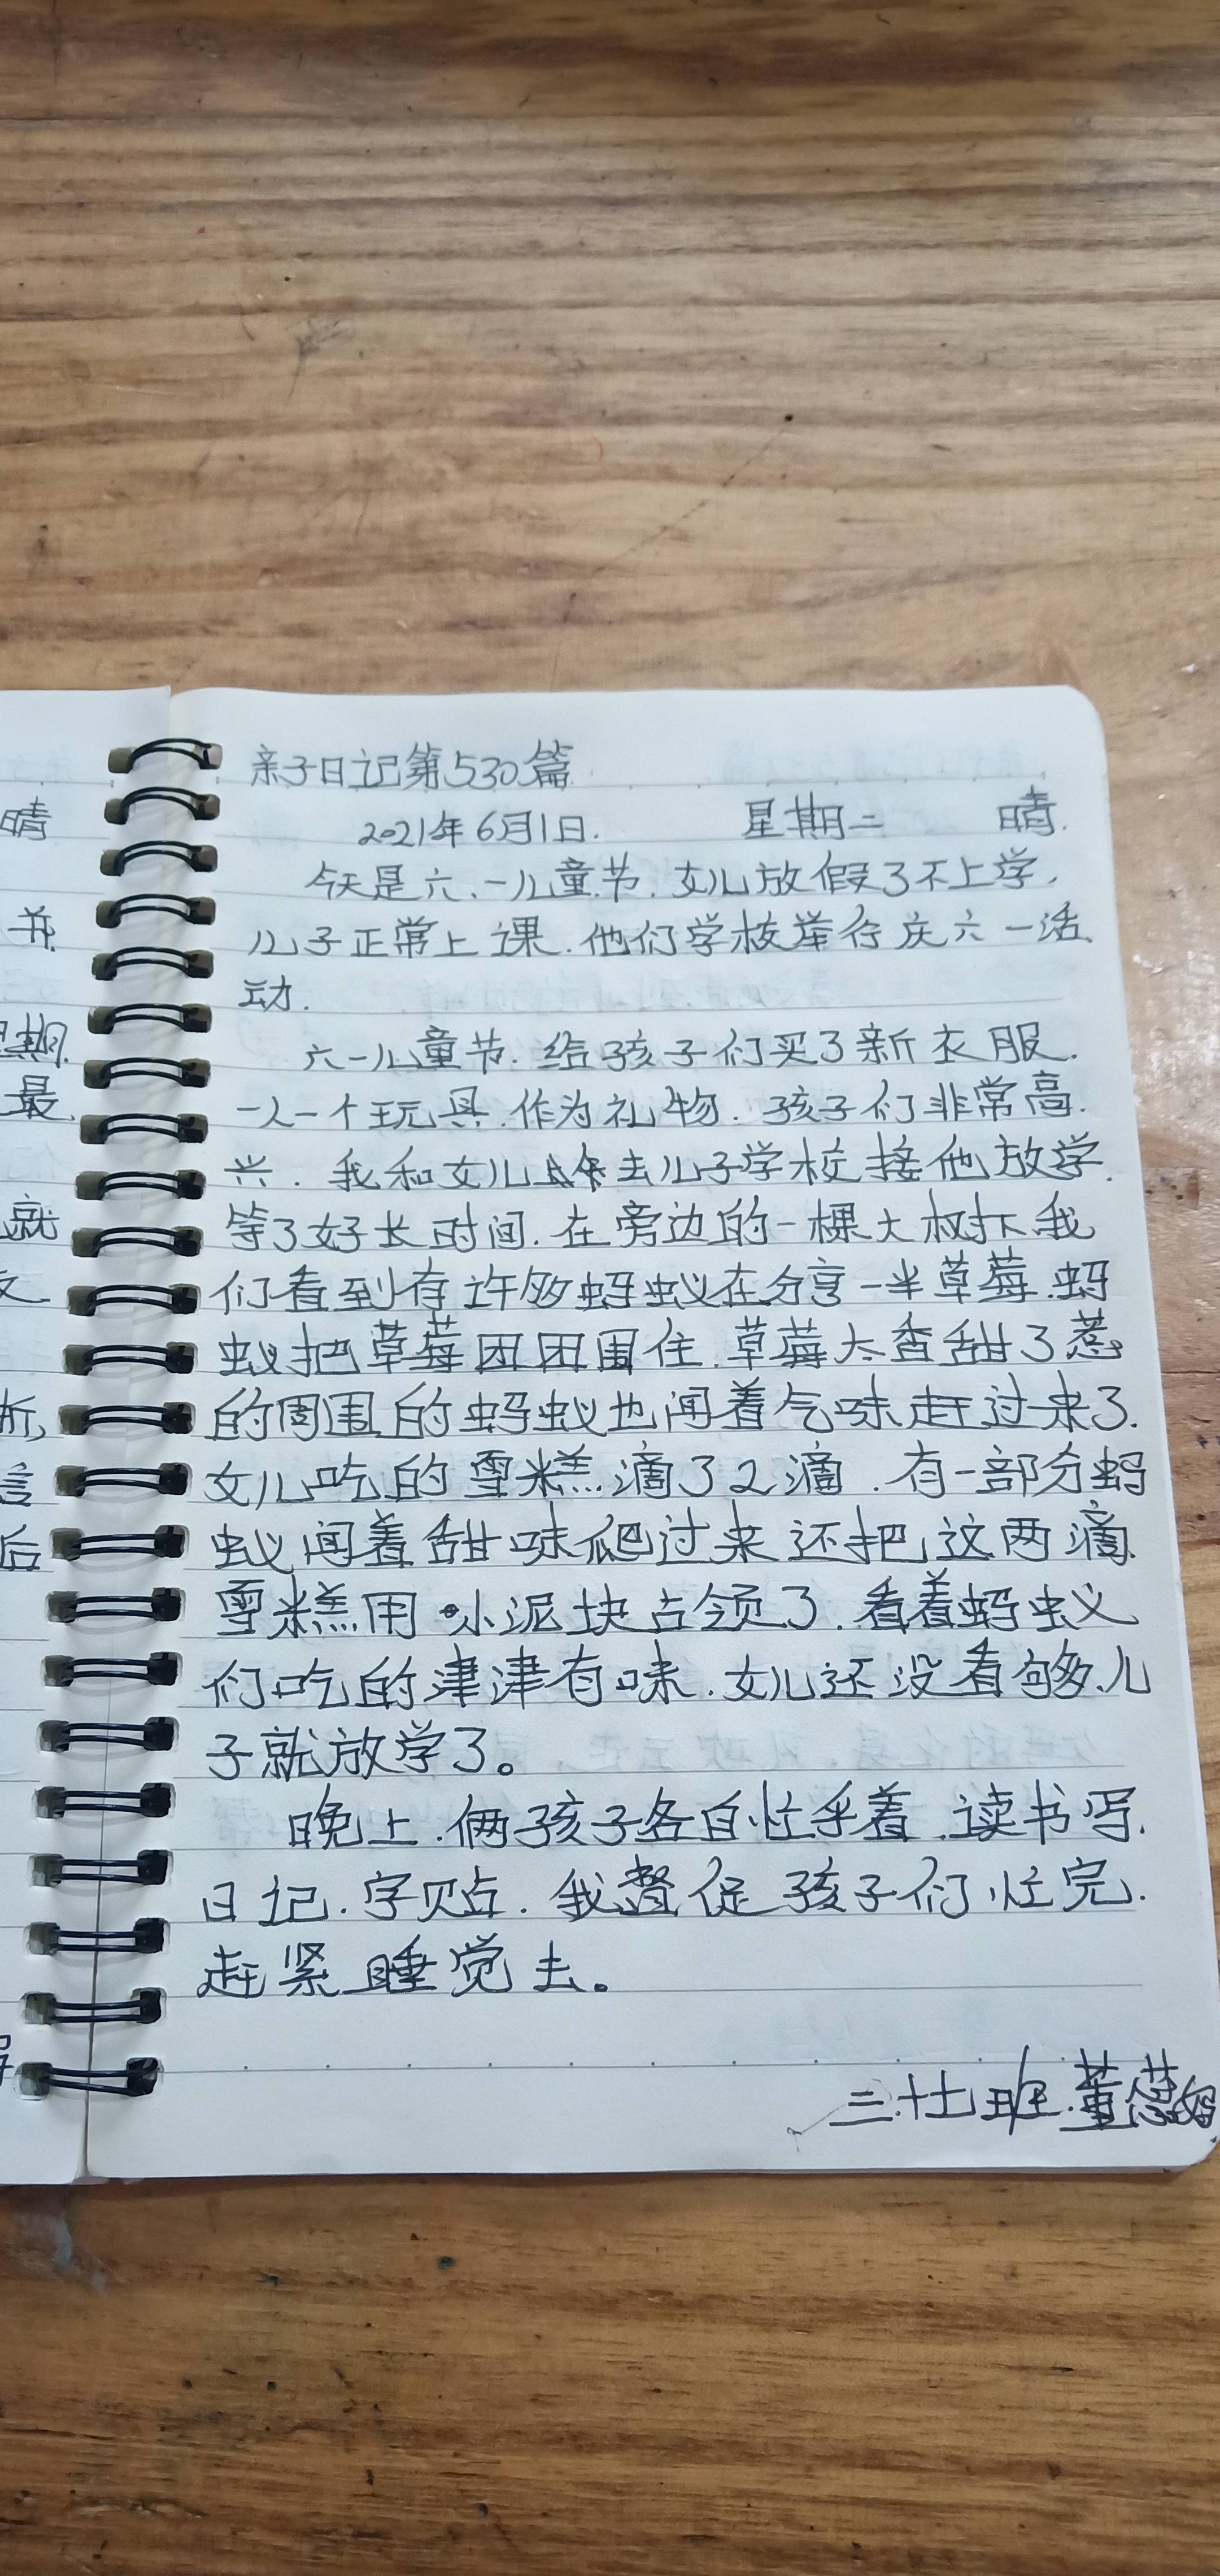 亲子日记第530篇
2021年6月1日. 星期二 晴.
今天是六、一儿童节.女儿放假了不上学,
儿子正常上课.他们学校举行庆六一活
动.
六一儿童节.给孩子们买了新衣服.
一人一个玩具.作为礼物.孩子们非常高
兴.我和女儿去儿子学校接他放学.
等了好长时间.在旁边的一棵大树下我
们看到有许多蚂蚁在分享一半草莓.蚂
蚁把草莓团团围住.草莓太香甜了惹
的周围的蚂蚁也闻着气味赶过来了.
女儿吃的雪糕滴了2滴.有一部分蚂
蚁闻着甜味爬过来还把这两滴
雪糕用小泥块占领了.看着蚂蚁
们吃的津津有味.女儿还没看够儿
子就放学了。
晚上.俩孩子各自忙乎着.读书写.
日记.字贴.我督促孩子们忙完.
赶紧睡觉去。
班.董
晴
书.
期.
最
就
文
斤,
言
后